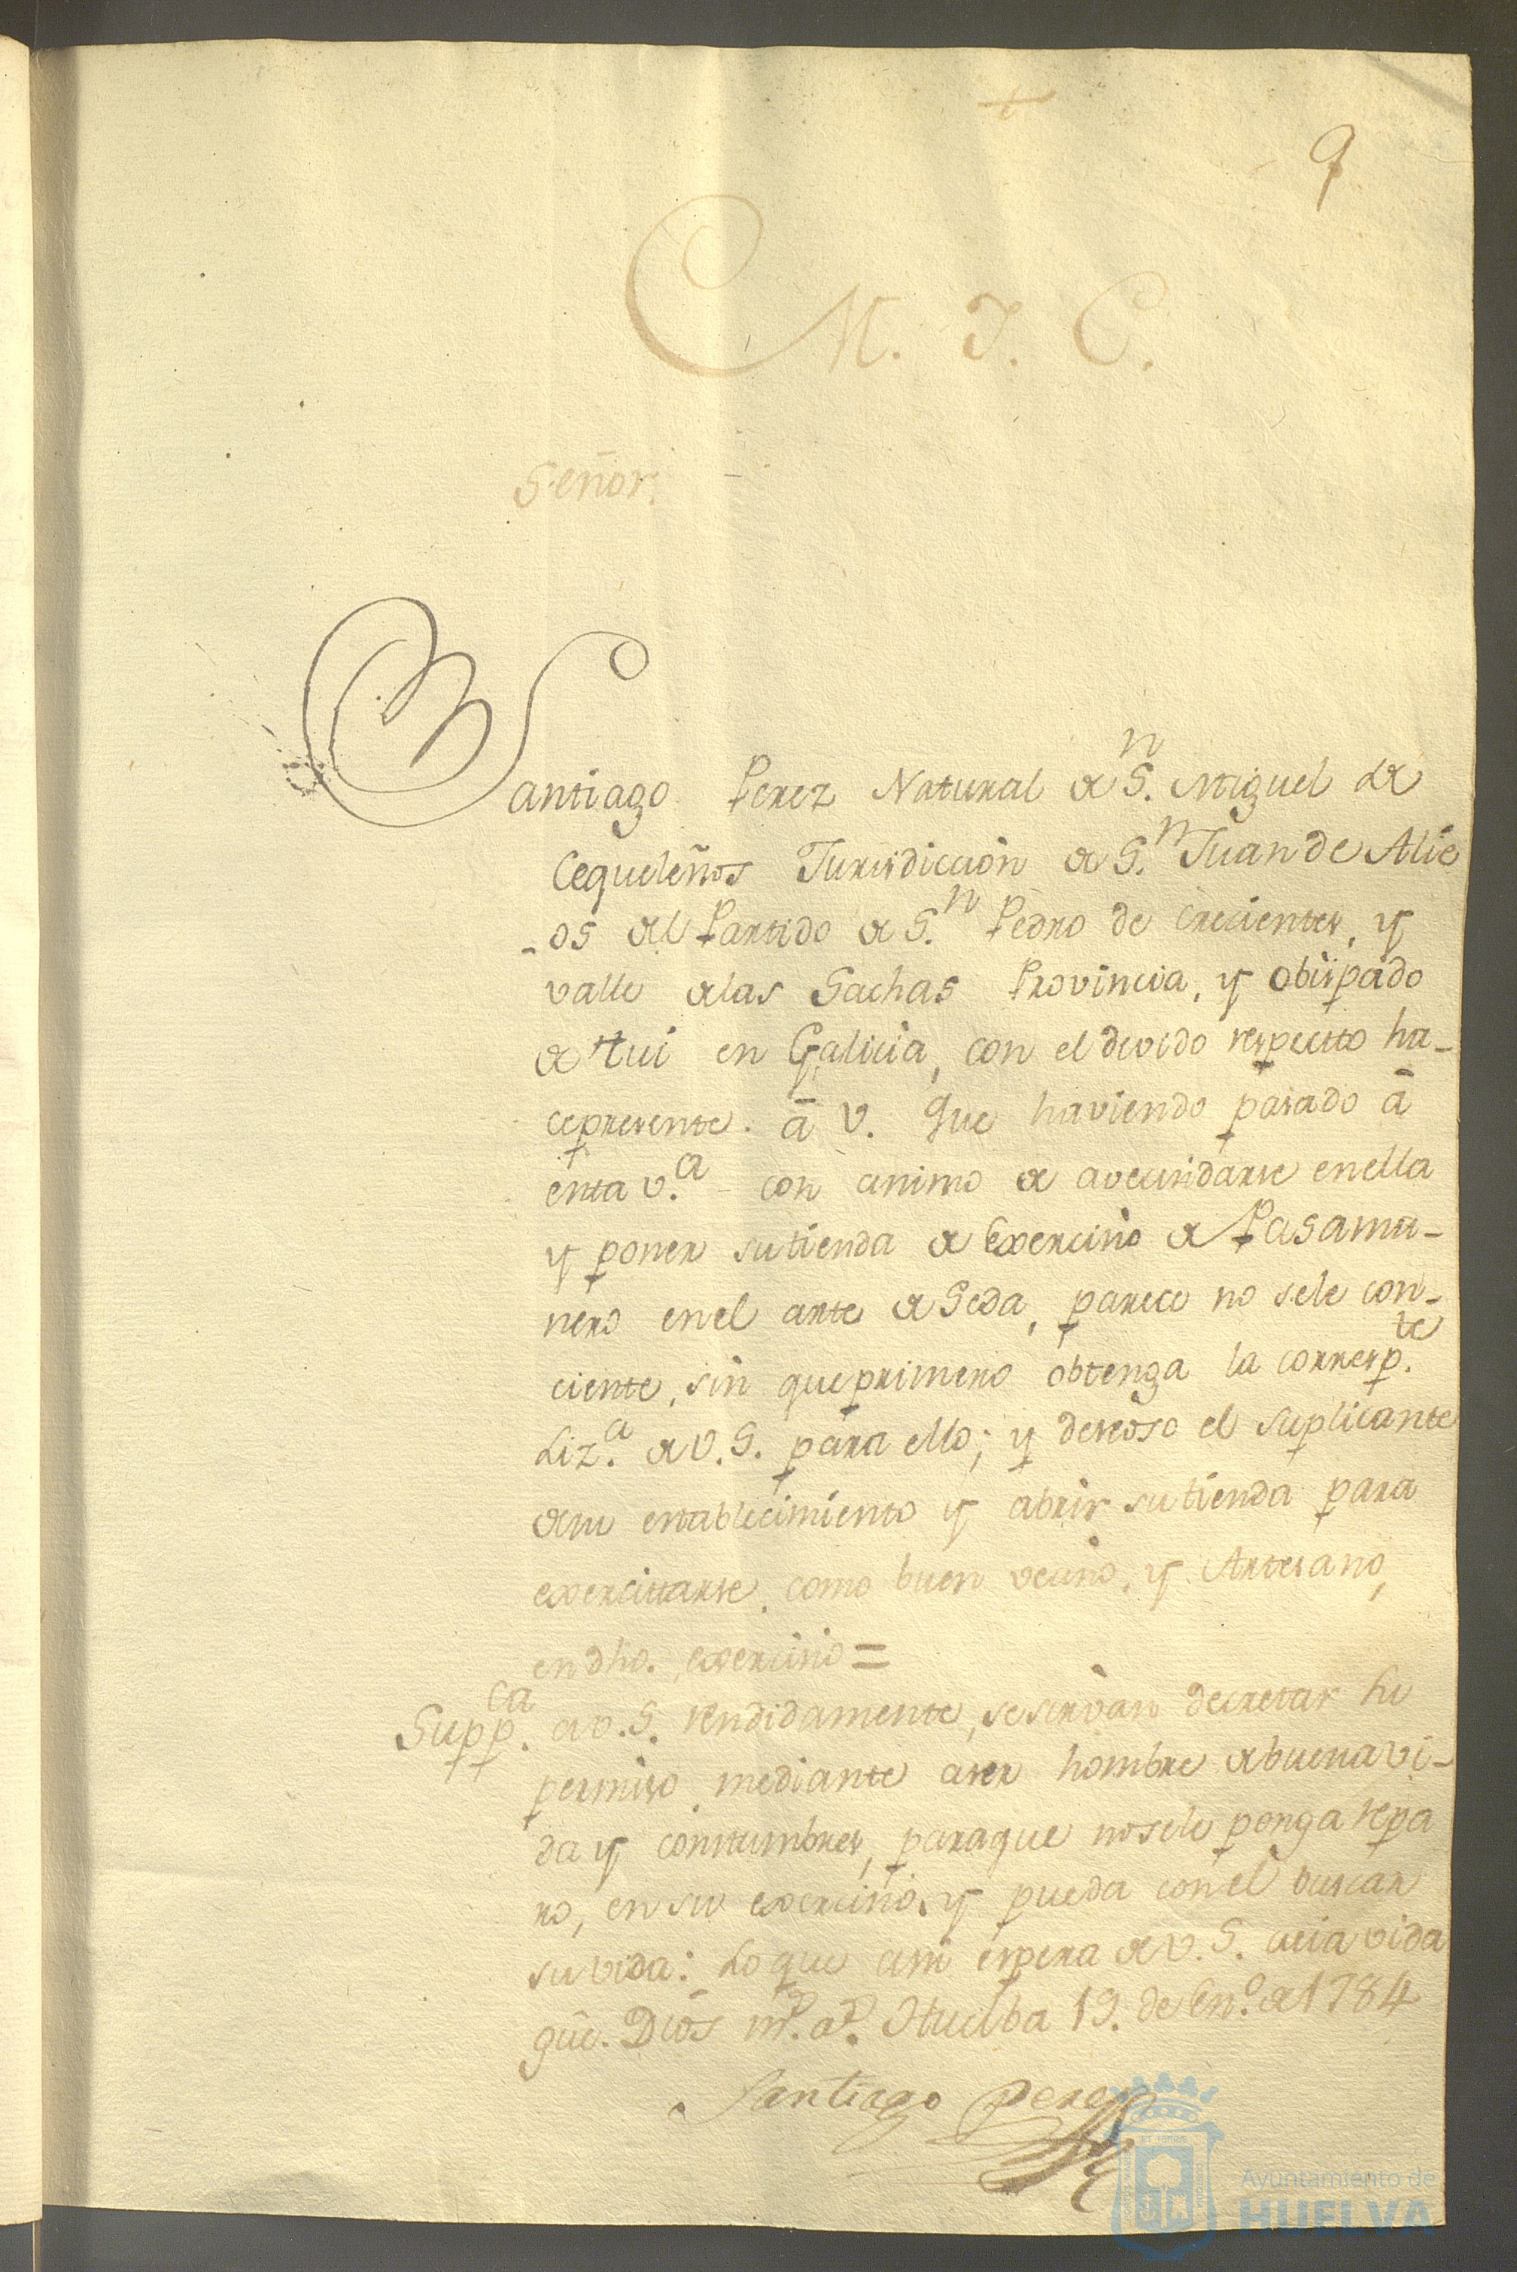 +
9
M. I. C.
Señor.
Santiago Perez Natural de S.n Miguel de
Cequeleños Jurisdiccion de S.n Juan de Alie
-os del Partido de S.n Pedro de Crecientes, y
valle delas Gachas Provincia, y obispado
de Tui en Galicia, con el devido respecto ha-
cepresente. â V. Que haviendo pasado â
esta v.ca con animo de avecindarse enella
y poner sutienda de Exercicio de Pasama-
nero enel arte de Seda, parece no sele con-
ciente, sin queprimero obtenga la corresp.te
Liz.a de V. S. para ello; y deseoso el suplicante
desu establecimiento y abrir sutienda para
exercitarse como buen vecino, y Artesano,
endho. exercicio =
Supp.ca a v. S. rendidamente, sesirvan decretar su
permiso mediante aser hombre debuenavi-
da y constumbres, paraque nosele ponga repa
ro, en su exercicio, y pueda conel buscar
suvida: Lo que asi espera de V. S. cuia vida
gûe. Dios m.s a.s Huelba 19. de En.o de 1784
Santiago Perez
Ayuntamiento de
HUELVA